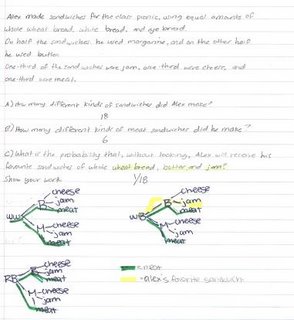 Alex made sandwiches for the class picnic, using equal amounts of
whole wheat bread, white bread, and rye bread.
On half the sandwiches he used margarine, and on the other half
he used butter.
One-third of the sandwiches were jam, one-third were cheese, and
one-third were meat.
A) How many different kinds of sandwiches did Alex make?
18
B) How many different kinds of meat sandwiches did he make?
6
C) What is the probability that, without looking, Alex will receive his
favourite sandwich of whole wheat bread, butter and jam?
Show your work
1/18
cheese
B jam
meat
WW
cheese
M jam
meat
cheese
B jam
meat
WB
cheese
M jam
meat
cheese
B jam
meat
RB
cheese
M jam
meat
= meat
= alex's favorite sandwich